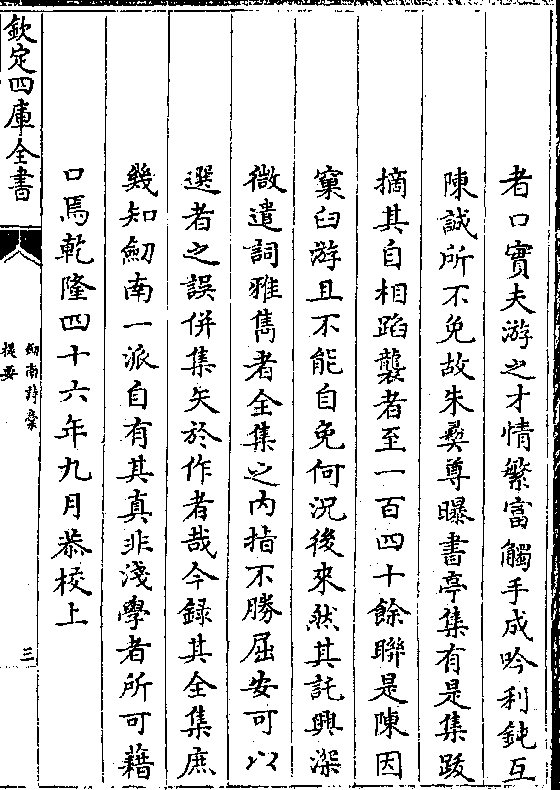 者口實夫游之才情繁富觸手成吟利鈍互
陳誠所不免故朱彝尊曝書亭集有是集跋
摘其自相蹈襲者至一百四十餘聯是陳因
窠臼游且不能自免何況後來然其託興深
微遣詞雅雋者全集之內指不勝屈安可以
選者之誤併集矢於作者哉今録其全集庶
幾知劒南一派自有其真非淺學者所可藉
口焉乾隆四十六年九月恭校上
欽定四庫全書
劒南詩稾
提要
三